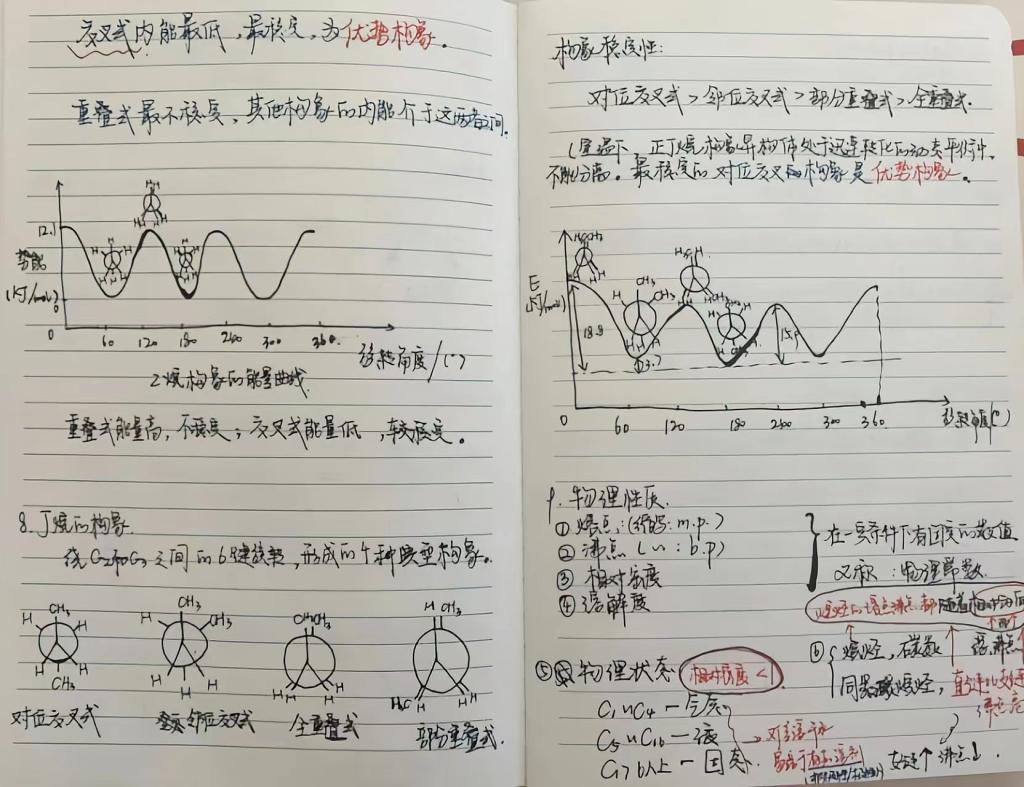 交叉式内能最低,最稳定,为优势构象。
重叠式最不稳定,其他构象的内能介于这两者之间。
12.1
势能
(KJ/mol)
0
0 60 120 180 240 300 360
旋转角度/(°)
乙烷构象的能量曲线
重叠式能量高,不稳定;交叉式能量低,较稳定。
8.丁烷的构象
绕C2和C3之间的σ键旋转,形成的4种典型构象。
CH3 H H H H CH3
CH3 H CH3 H H H
CH3CH3 H H H H
H CH3 H3C H H H
对位交叉式 邻位交叉式 全重叠式 部分重叠式.
构象稳定性:
对位交叉式>邻位交叉式>部分重叠式>全重叠式.
(室温下,正丁烷构象异构体处于迅速转化的动态平衡中,
不能分离。最稳定的对位交叉构象是优势构象。
E
(KJ/mol)
18.8
3.7
0 60 120 180 240 300 360
旋转角度(°)
9.物理性质.
①熔点:(缩写:m.p.)
②沸点(〃:b.p)
③相对密度
④溶解度
在一定条件下有固定的数值
又称:物理常数.
⑤物理状态 相对密度<1
C1~C4—气态
C5~C16—液
C17以上—固态.
⑥烷烃,碳数
同碳数烷烃,
支链↑ 沸点↓.